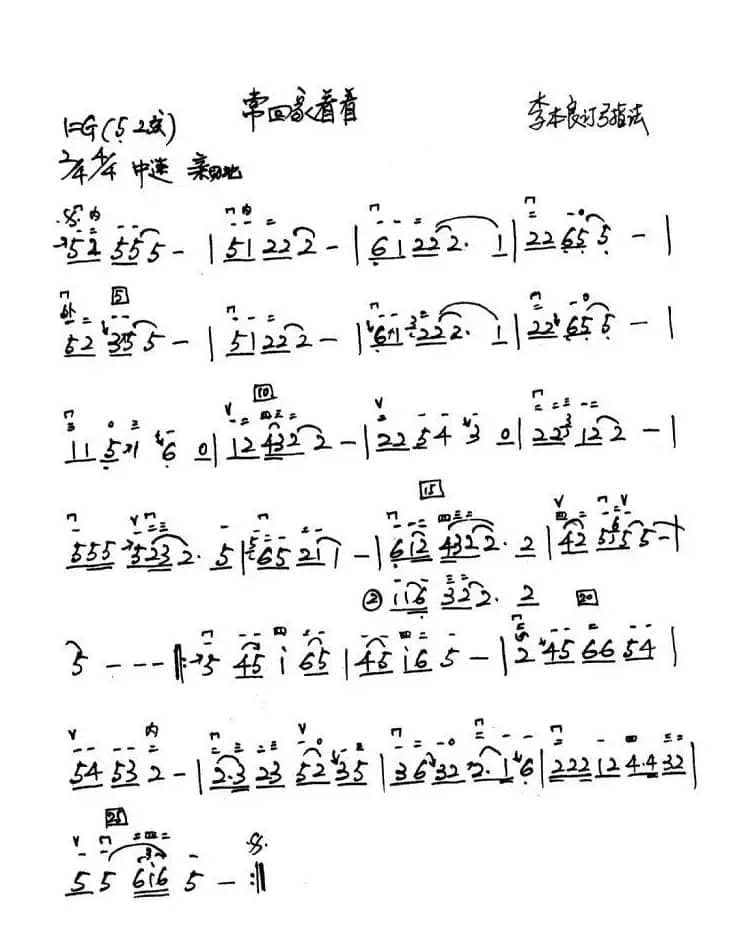 常回家看看
李本良订弓指法
1=G(5 2弦)
2/4 4/4 中速 亲切地
52 555 - | 51 222 - | 61 222· 1 | 22 655 - |
52 355 - | 51 222 - | 61 222· 1 | 22 655 - |
11 51 6 0 | 12 4322 - | 22 54 3 0 | 22 122 - |
555 5232· 5 | 65 211 - | 612 4322· 2 | 42 555 -
② i i6 322· 2
5 - - - ‖: 5 45 i 65 | 45 i6 5 - | 2 45 66 54 |
54 53 2 - | 2·3 23 52 35 | 36 32 2· 1 6 | 222 12 4·4 32 |
5 5 6i6 5 - :‖